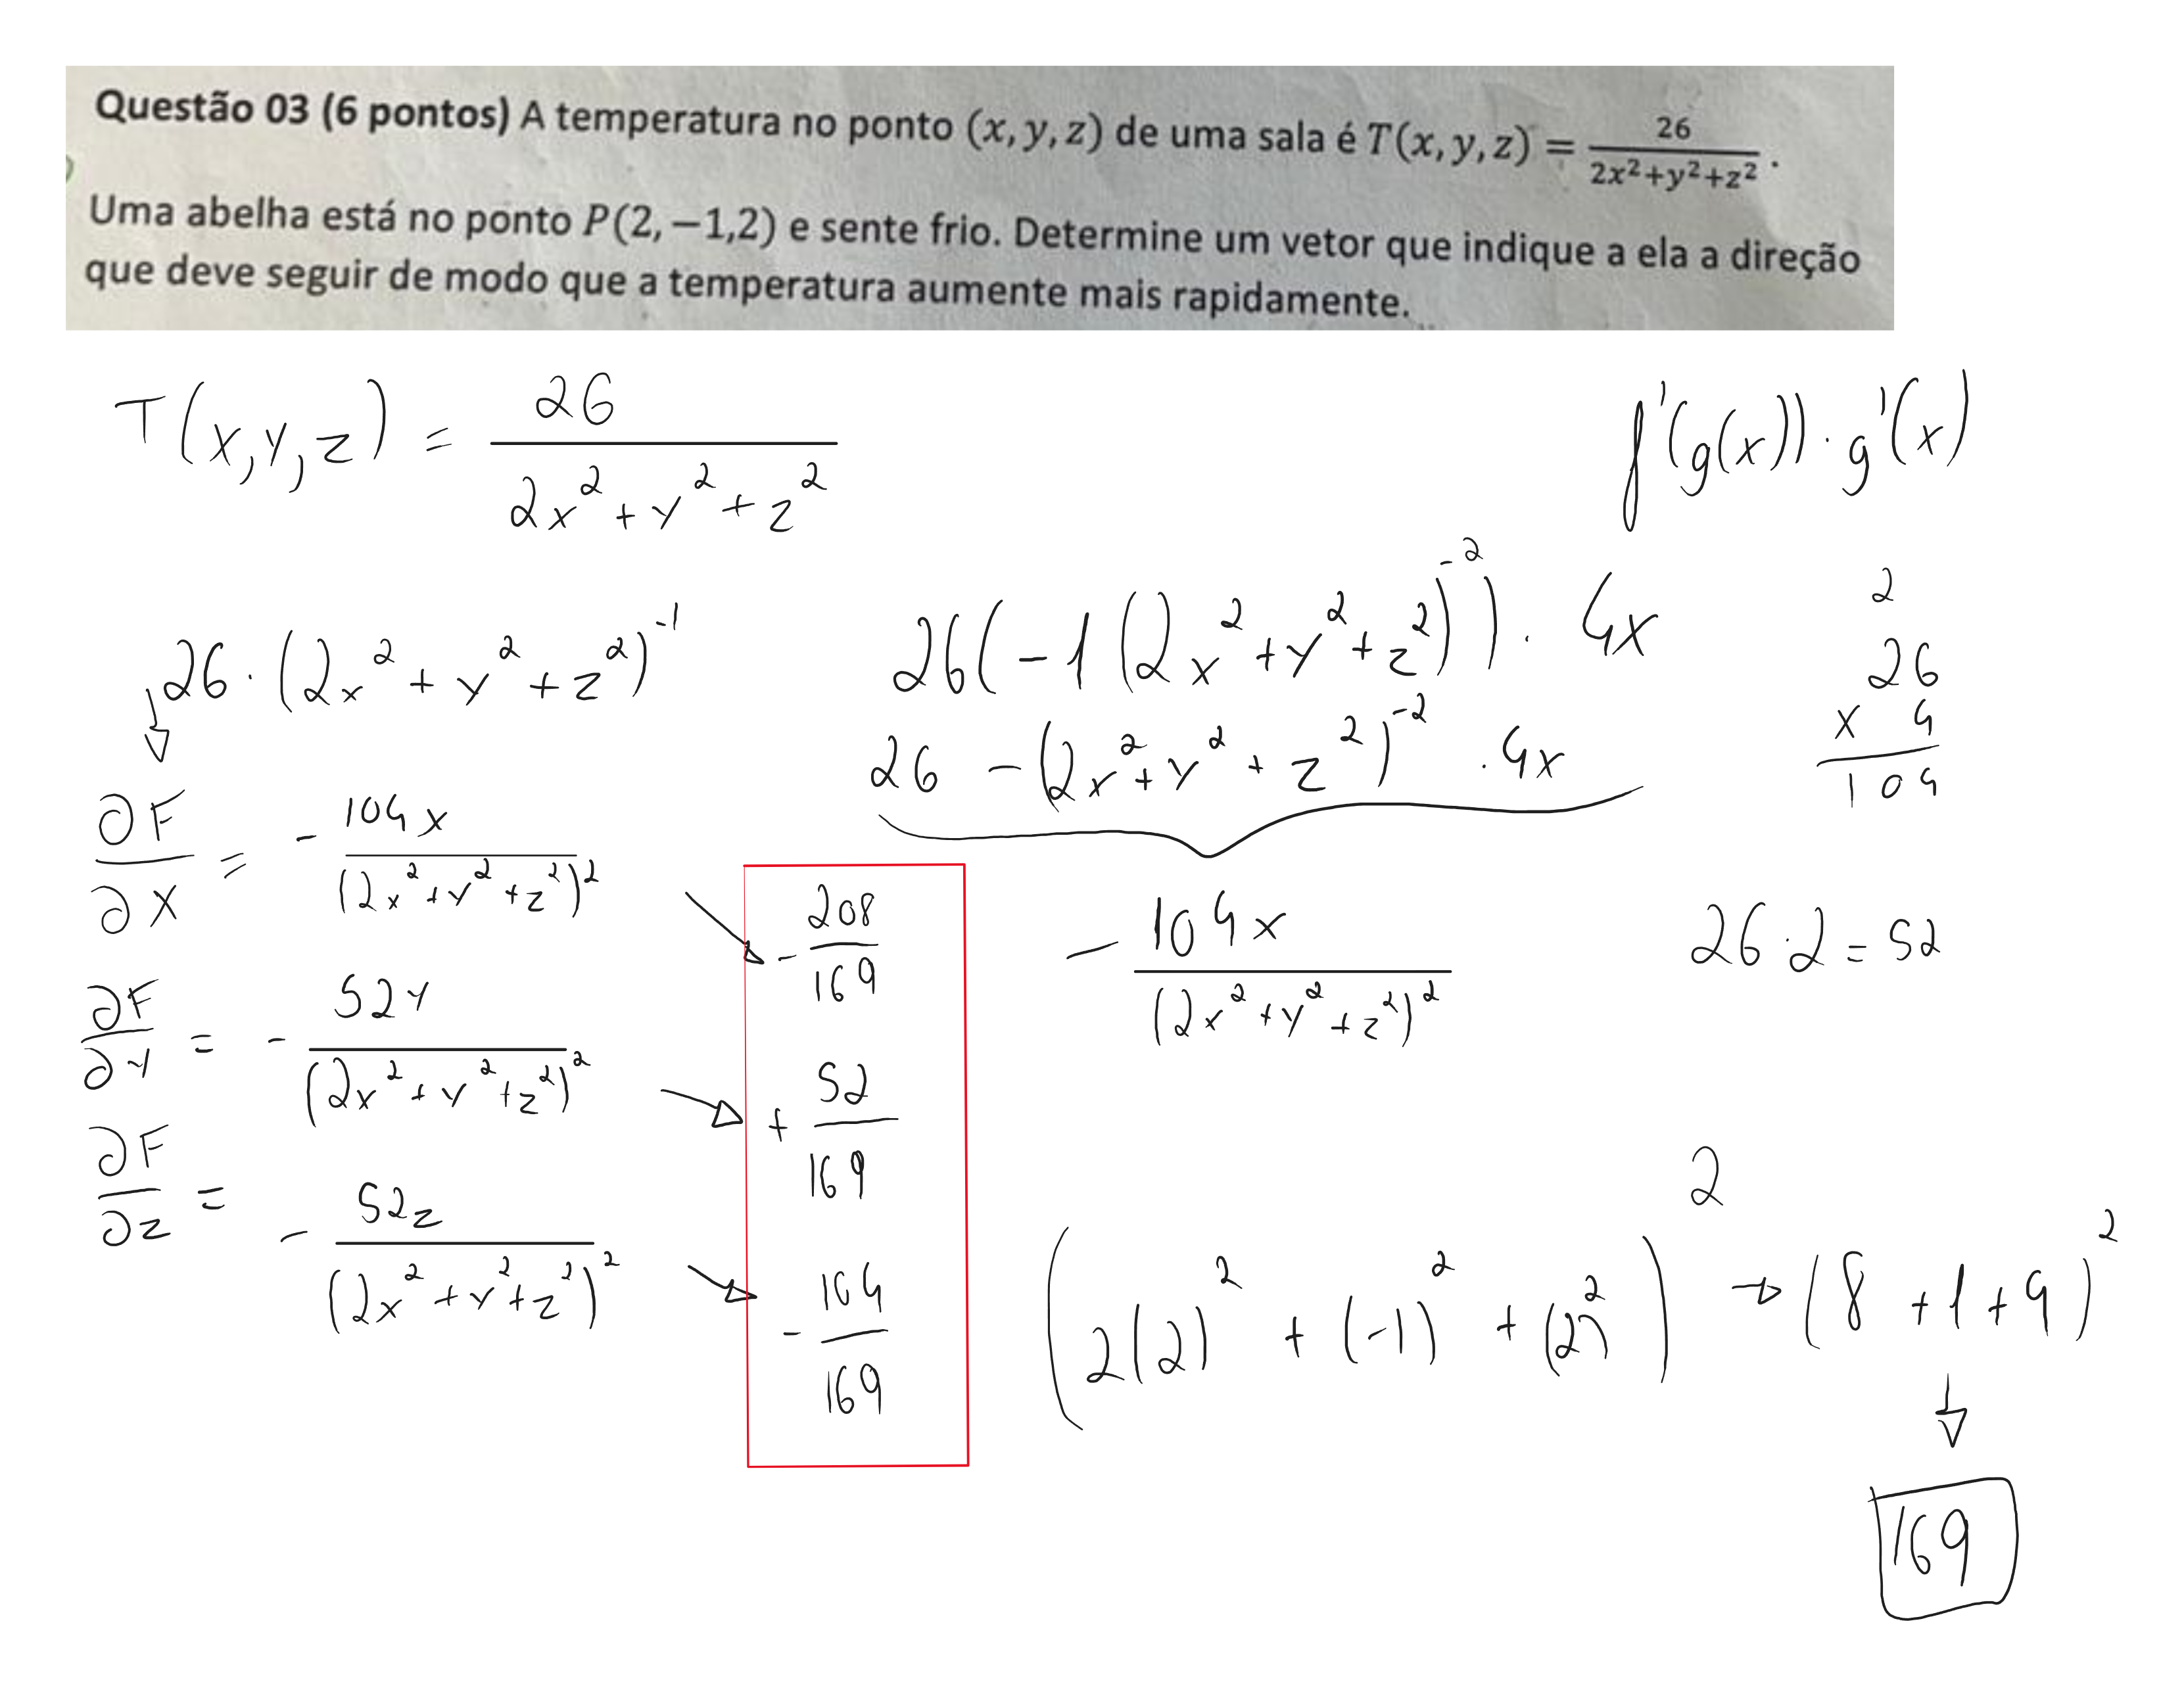 Questão 03 (6 pontos) A temperatura no ponto (x, y, z) de uma sala é T(x, y, z) = 26/(2x²+y²+z²) .
Uma abelha está no ponto P(2, −1,2) e sente frio. Determine um vetor que indique a ela a direção
que deve seguir de modo que a temperatura aumente mais rapidamente.
T(x,y,z) = 26/(2x² + y² + z²)
f'(g(x)) · g'(x)
26 · (2x² + y² + z²)⁻¹
26(-1(2x² + y² + z²)⁻²) · 4x
26 - (2x² + y² + z²)⁻² · 4x
2
26
x 4
104
∂F/∂x = - 104x/(2x² + y² + z²)²
- 208/169
- 104x/(2x² + y² + z²)²
26 · 2 = 52
∂F/∂y = - 52y/(2x² + y² + z²)²
+ 52/169
∂F/∂z = - 52z/(2x² + y² + z²)²
- 104/169
(2(2)² + (-1)² + (2)²)² → (8 + 1 + 4)²
169